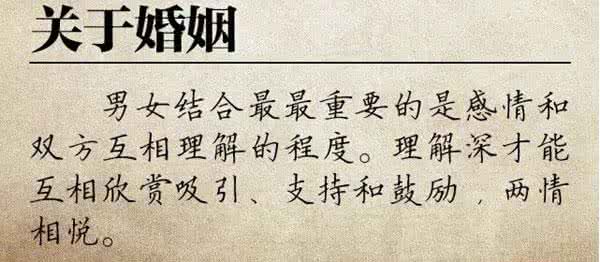 关于婚姻
男女结合最最重要的是感情和
双方互相理解的程度。理解深才能
互相欣赏吸引、支持和鼓励，两情
相悦。